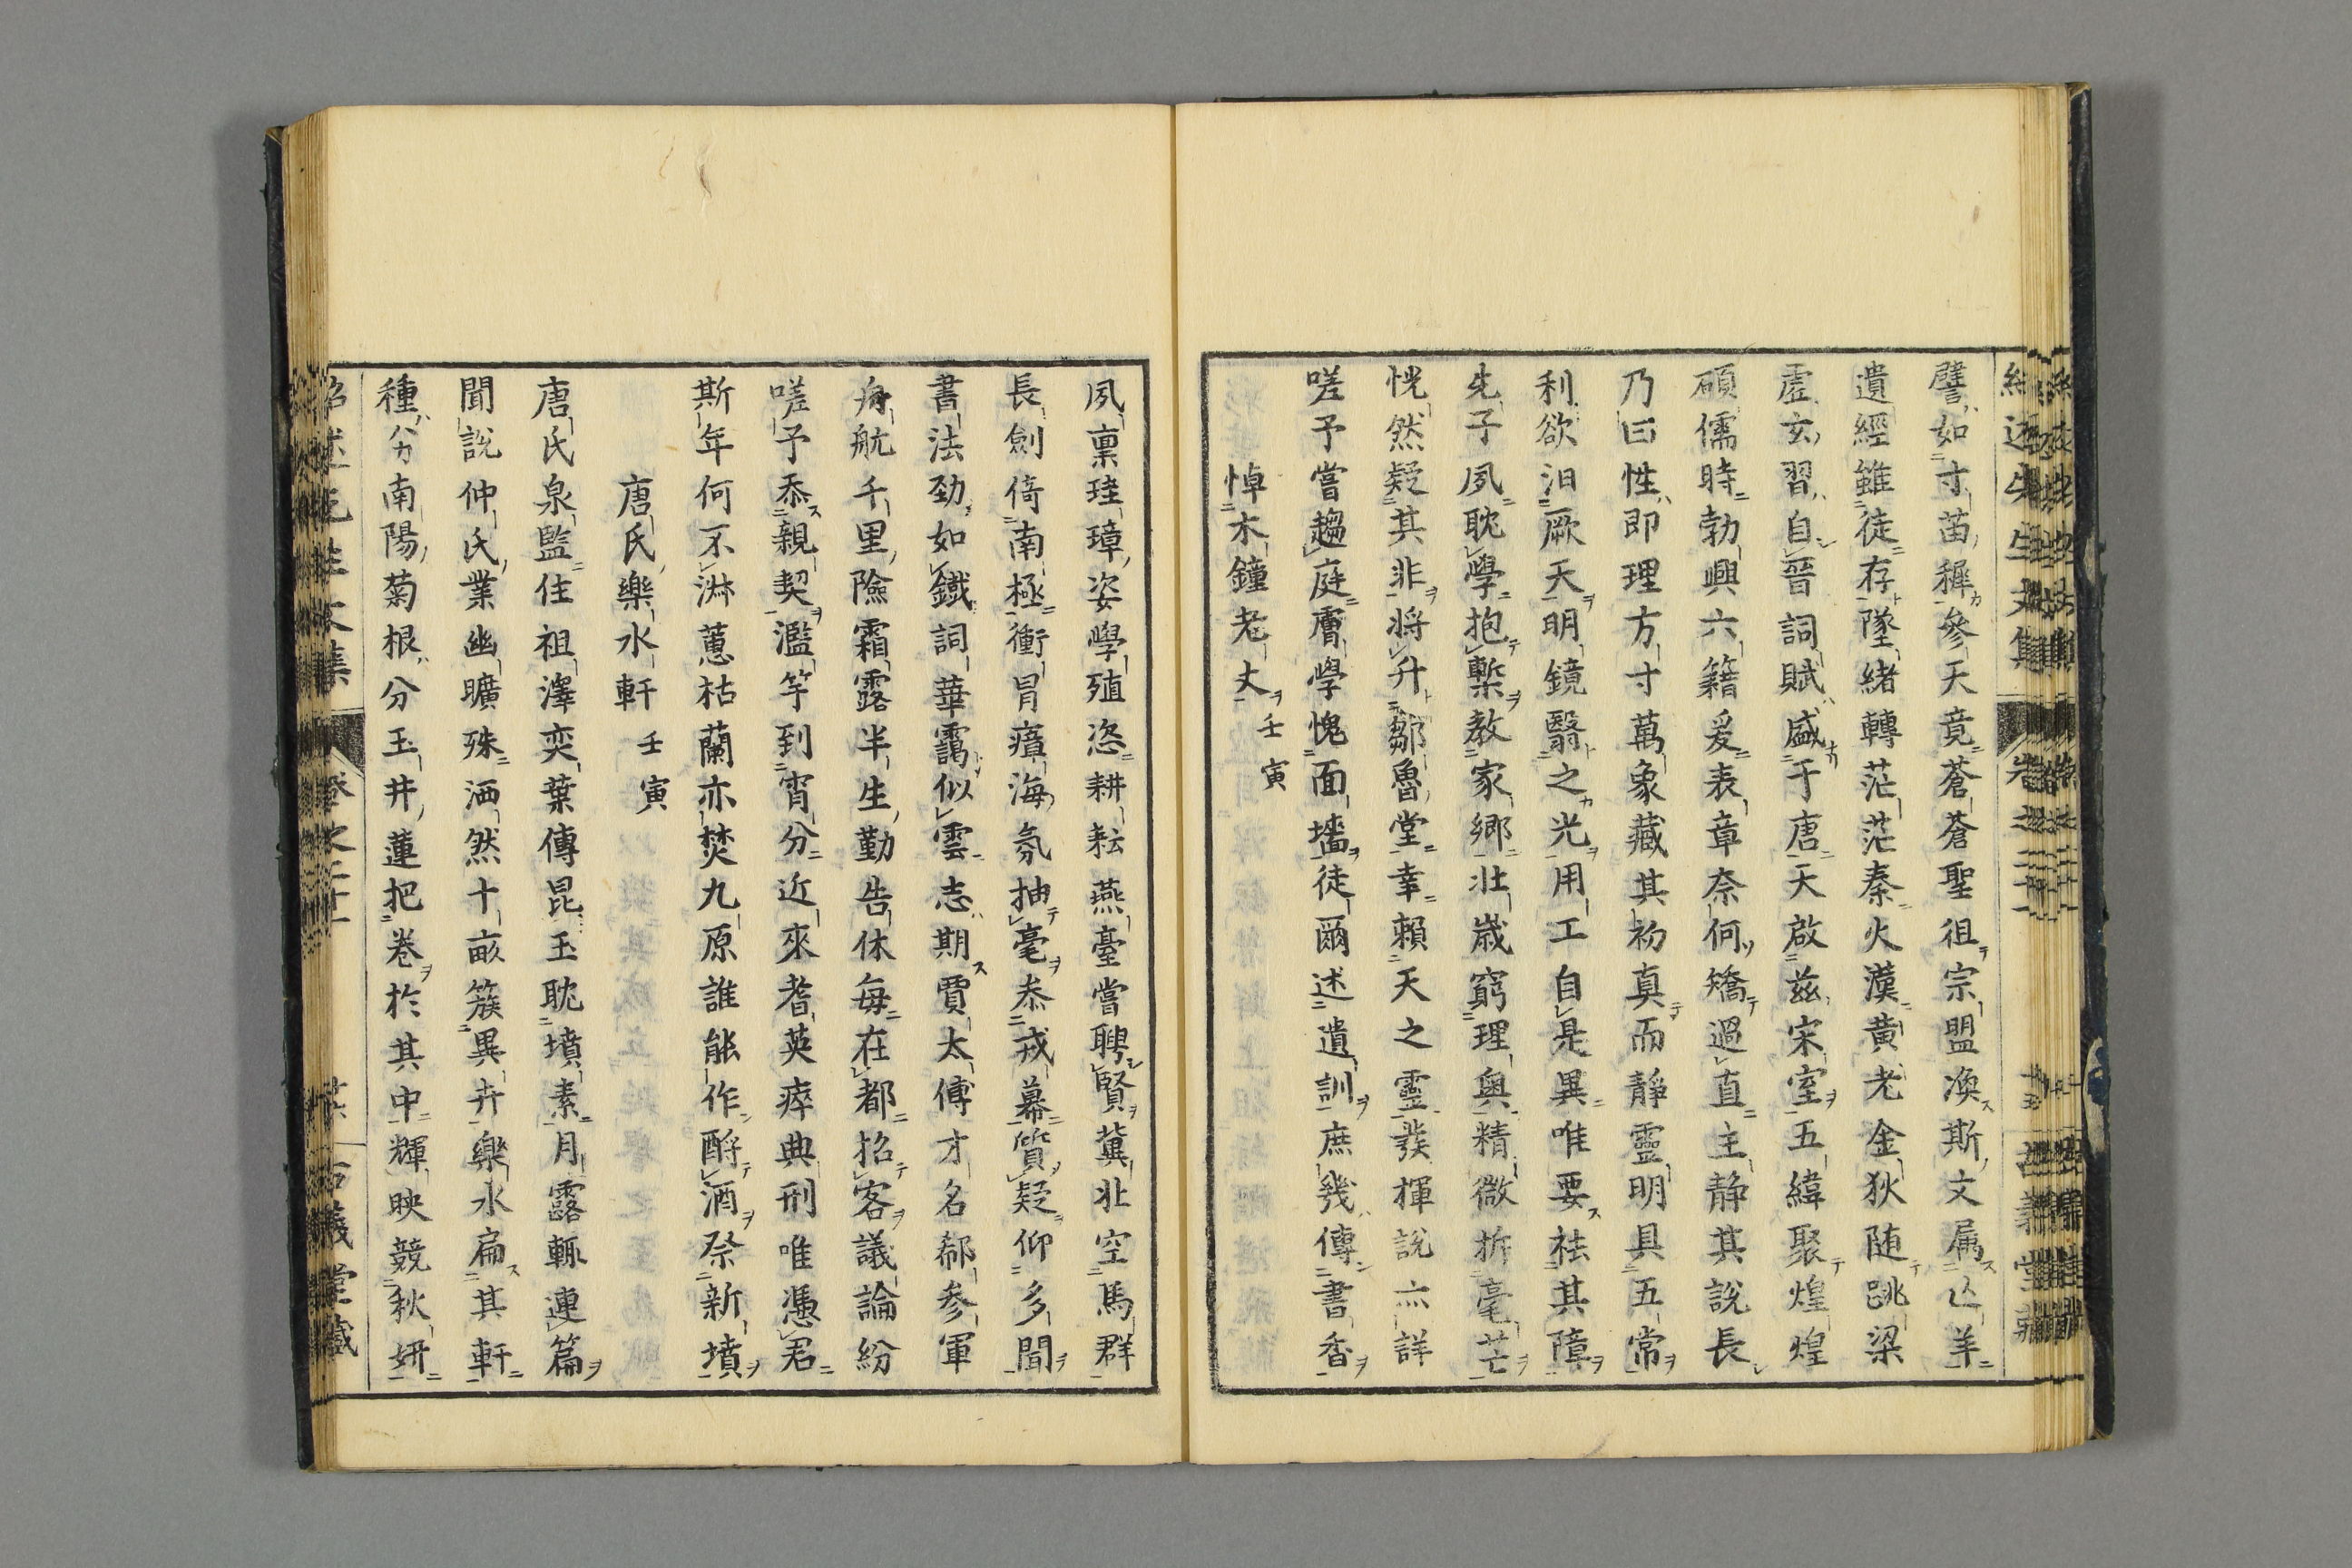 譬如寸苗穉參天竟蒼蒼聖徂宗盟渙斯文属亾羊
遺經雖徒存墜緒轉茫茫秦火漢黄老金狄随跳梁
虚玄習自晉詞賦盛于唐天啟兹宋室五緯聚煌煌
碩儒時勃興六籍爰表章奈何矯過直主静其說長
乃曰性即理方寸萬象藏其初真而靜靈明具五常
利欲汩厥天明鏡翳之光用工自是異唯要祛其障
先子夙耽學抱槧教家郷壯歳窮理奥精微折毫芒
恍然疑其非將升鄒魯堂幸賴天之靈發揮說亦詳
嗟予嘗趨庭膚學愧面墻徒爾述遺訓庶幾傳書香
悼木鐘老丈 壬寅
夙禀珪璋姿學殖恣耕耘燕臺嘗聘賢冀北空馬群
長劍倚南極衝冒瘴海氛抽毫泰戎幕質疑仰多聞
書法勁如鐵詞華靄似雲志期賈太傅才名郗參軍
舟航千里險霜露半生勤告休每在都招客議論紛
嗟予忝親契濫竽到宵分近來耆英瘁典刑唯憑君
斯年何不淋蕙枯蘭亦焚九原誰能作酹酒祭新墳
唐氏樂水軒 壬寅
唐氏泉監住祖澤奕葉傳昆玉耽墳素月露輙連篇
聞說仲氏業幽曠殊洒然十畝簇異卉樂水扁其軒
種分南陽菊根分玉井蓮把卷於其中輝映競秋妍
紹述先生文集 卷之二十一 古義堂藏